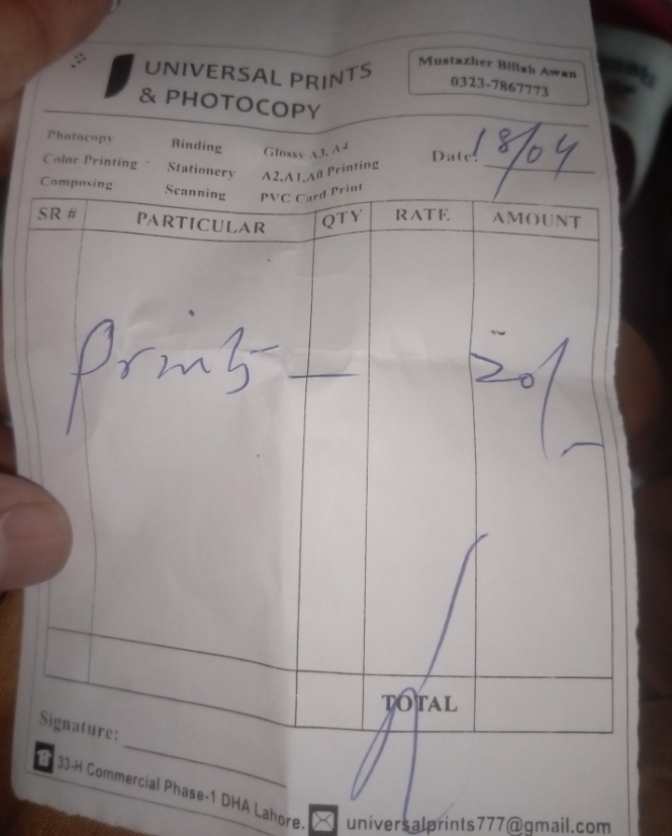 UNIVERSAL PRINTS
& PHOTOCOPY
Mustazher Billah Awan
0323-7867773
Photocopy Binding Glossy A3, A4
Color Printing Stationery A2,A1,A0 Printing
Composing Scanning PVC Card Print
Date: 18/04
SR # PARTICULAR QTY RATE AMOUNT
Prints — 20/-
TOTAL
Signature:
33-H Commercial Phase-1 DHA Lahore. universalprints777@gmail.com